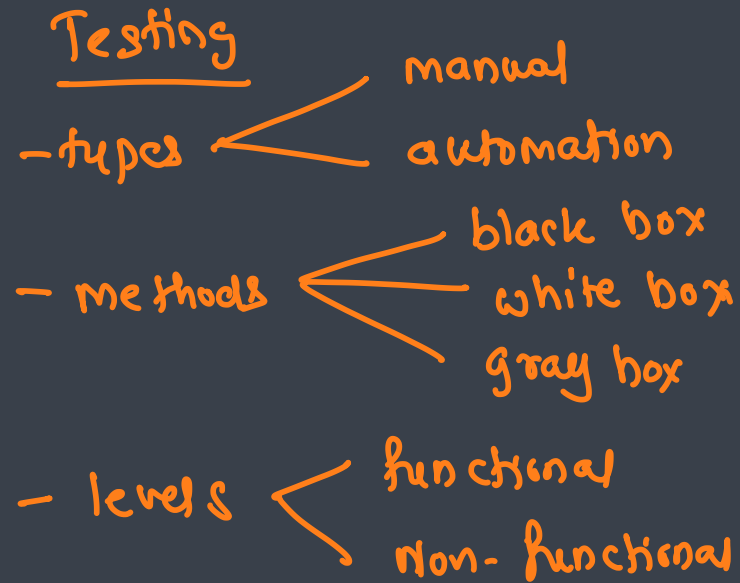 Testing
- types
manual
automation
- methods
black box
white box
gray box
- levels
functional
Non-functional